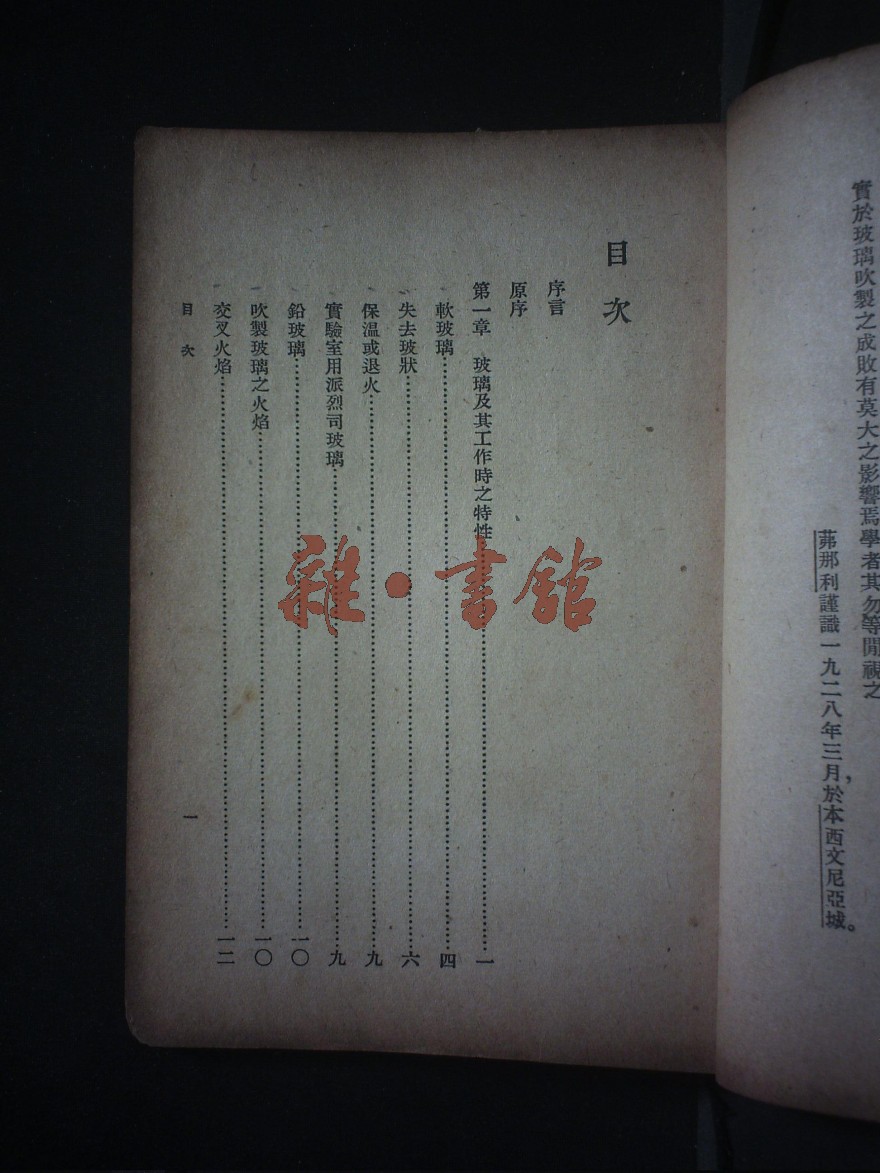 實於玻璃吹製之成敗有莫大之影響焉學者其勿等閒視之
茀那利謹識一九二八年三月,於本西文尼亞城。
目次
序言
原序
第一章 玻璃及其工作時之特性……一
軟玻璃……四
失去玻狀……六
保溫或退火……九
實驗室用派烈司玻璃……九
鉛玻璃……一〇
吹製玻璃之火焰……一〇
交叉火焰……一二
目次
一
雜·書館